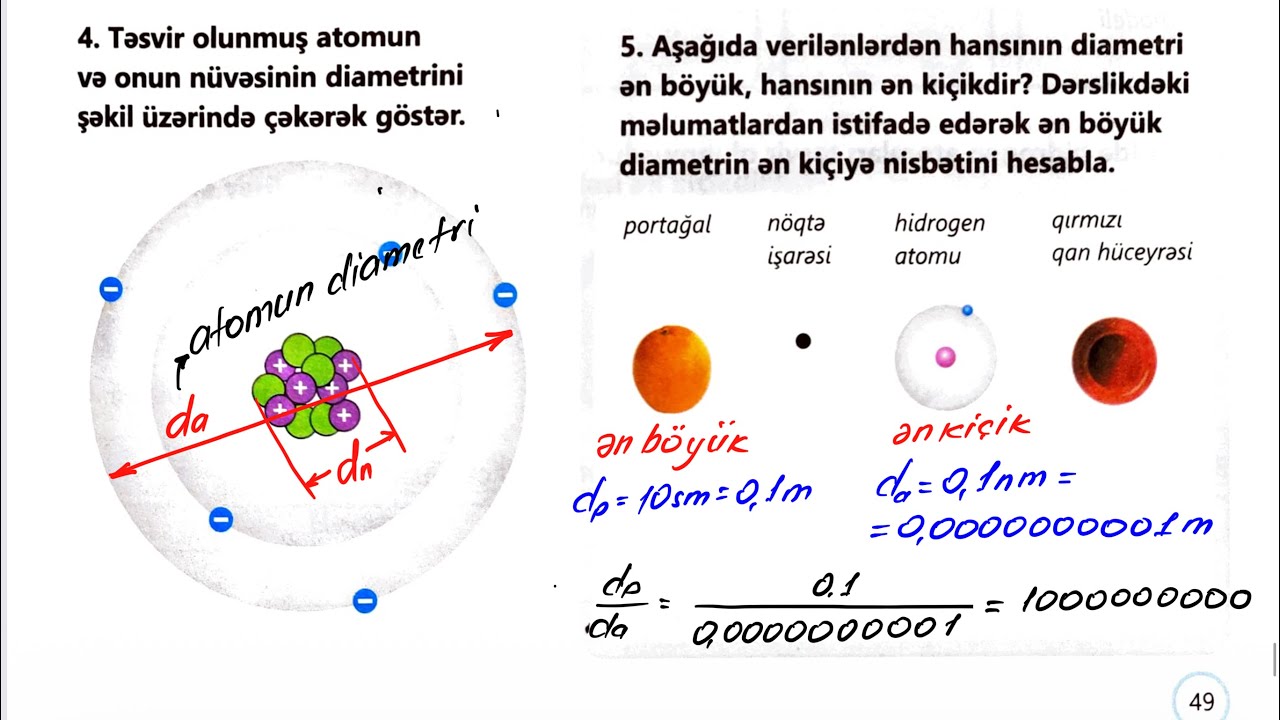 4. Təsvir olunmuş atomun
və onun nüvəsinin diametrini
şəkil üzərində çəkərək göstər.
atomun diametri
− − −
+ +
+ +
+ +
da
dn
−
−
5. Aşağıda verilənlərdən hansının diametri
ən böyük, hansının ən kiçikdir? Dərslikdəki
məlumatlardan istifadə edərək ən böyük
diametrin ən kiçiyə nisbətini hesabla.
portağal
nöqtə
işarəsi
hidrogen
atomu
qırmızı
qan hüceyrəsi
ən böyük
ən kiçik
dp = 10sm = 0,1m
da = 0,1nm =
= 0,0000000001m
dp/da = 0,1/0,0000000001 = 1000000000
49